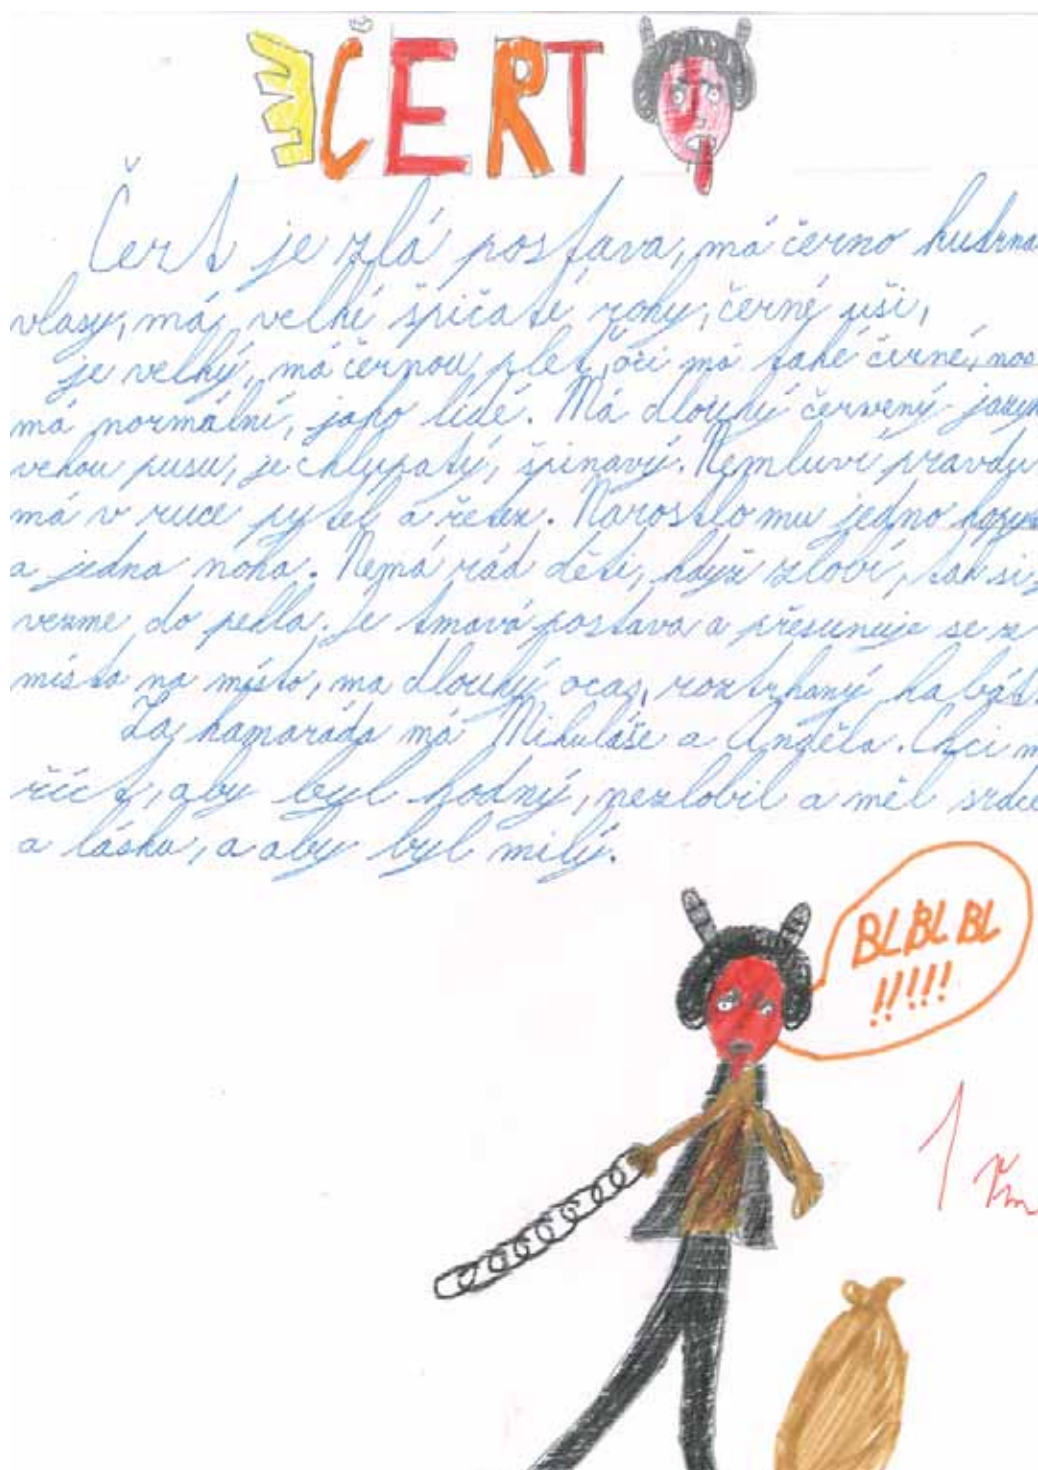 ČERT
Čert je zlá postava, má černo kudrna
vlasy, má velké špičaté rohy, černé uši,
je velký, má černou pleť, oči má také černé, nos
má normální, jako lidé. Má dlouhý červený jazyk
velkou pusu, je chlupatý, špinavý. Nemluví pravdu
má v ruce pytel a řetěz. Narostlo mu jedno kopyto
a jedna noha. Nemá rád děti, když zlobí, tak si,
vezme do pekla. Je tmavá postava a přesunuje se z
místa na místo, má dlouhý ocas, roztrhaný kabát.
Za kamaráda má Mikuláše a Anděla. Chci m
říct, aby byl hodný, nezlobil a měl srdce
a lásku, a aby byl milý.
BL BL BL
!!!!!
1